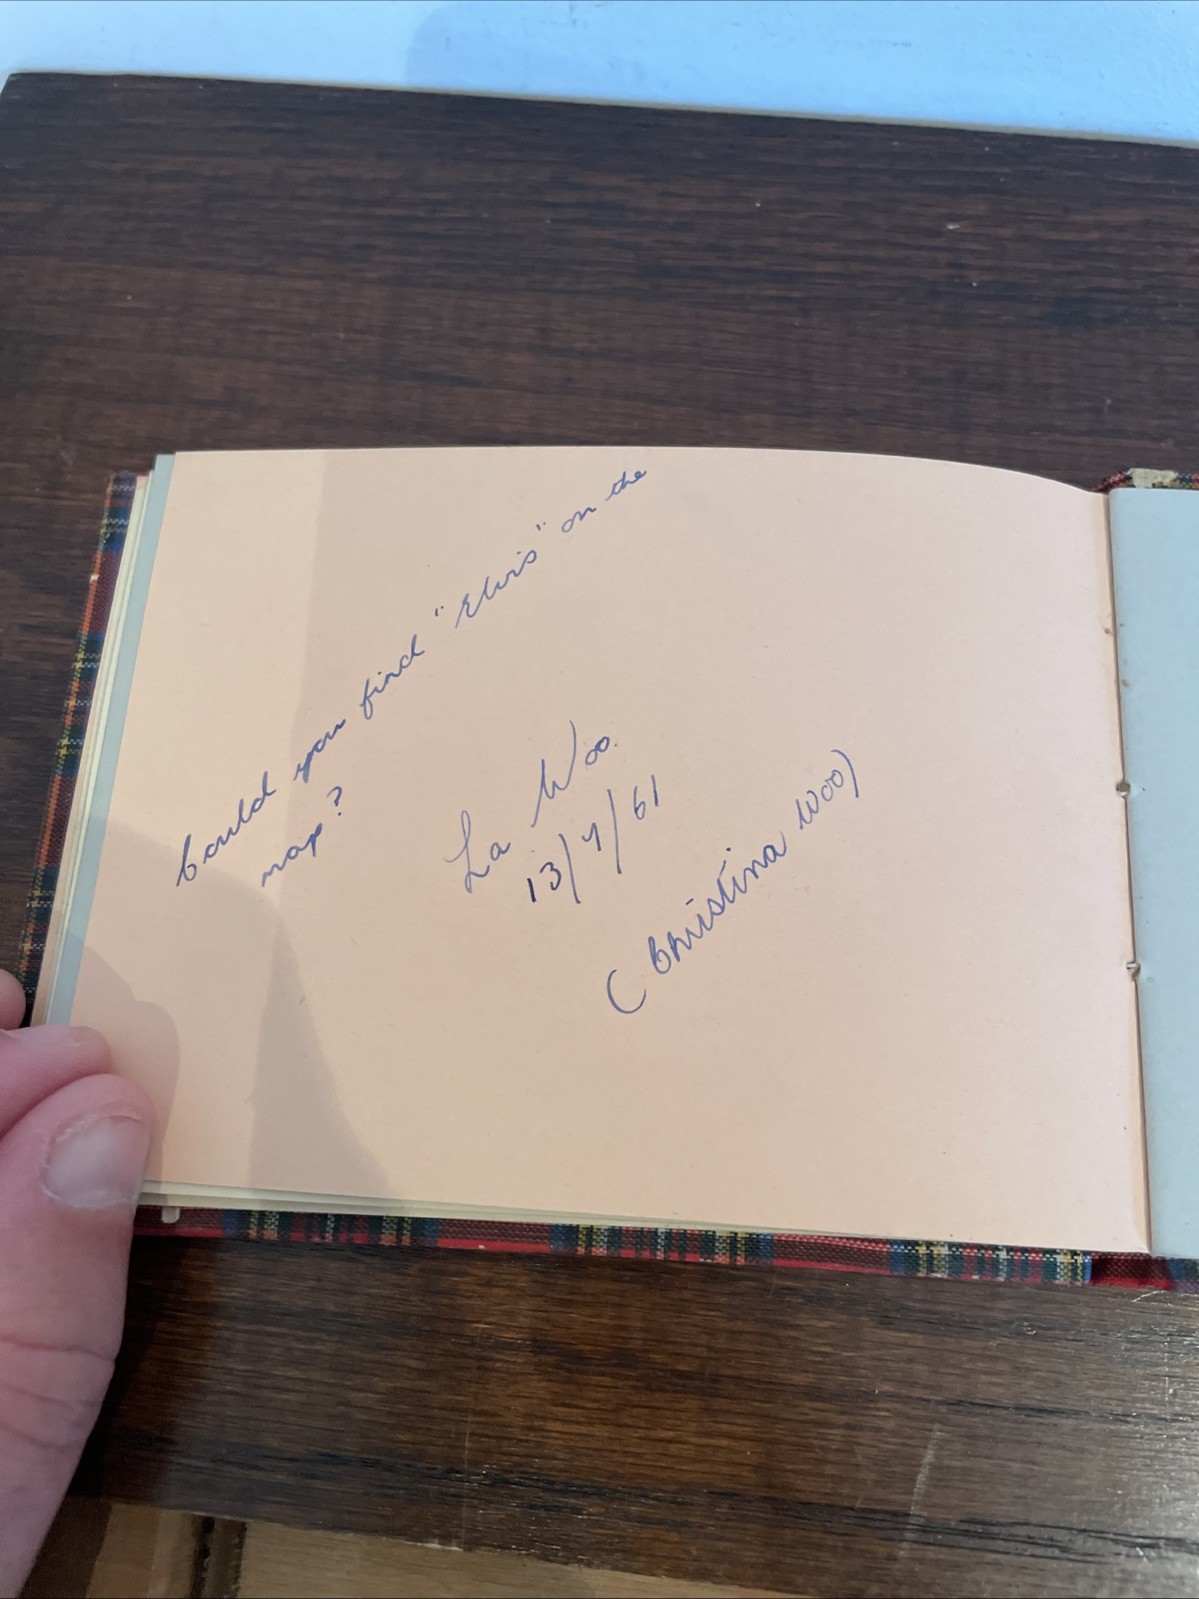 Could you find "Elvis" on the
map?
La Woo.
13/4/61
(Christina Woo)